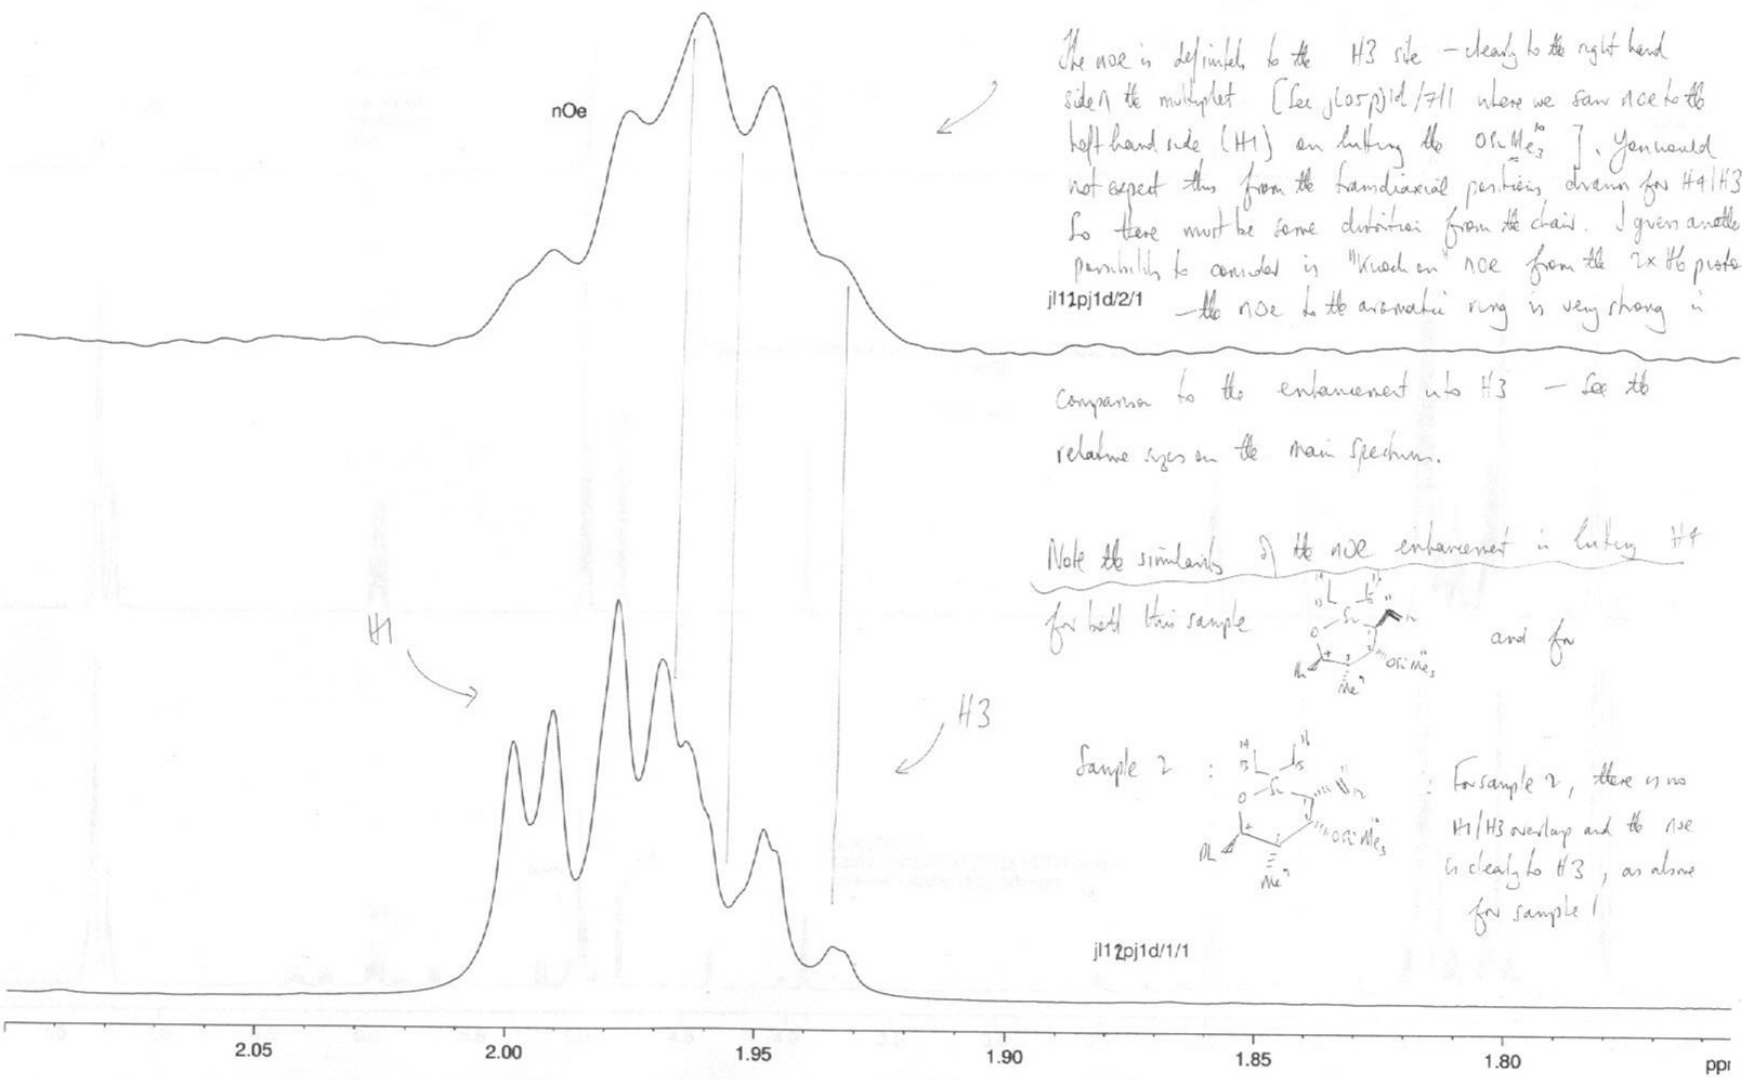 nOe
The nOe is definitely to the H3 site – clearly to the right hand
side of the multiplet. [See jl05pj1d/7/1 where we saw nOe to the
left hand side (H1) on hitting the OSiMe3 10 ]. You would
not expect this from the transdiaxial positions drawn for H4/H3
So there must be some distortion from the chair. I guess another
possibility to consider is "knock on" nOe from the 2x H6 proto
jl11pj1d/2/1 – the nOe to the aromatic ring is very strong in
comparison to the enhancement into H3 – See the
relative sizes on the main spectrum.
Note the similarity of the nOe enhancement in hitting H4
for both this sample
and for
O
Ph
Me 9
OSiMe3
H1
H3
Sample 2 :
14 16
13 15
O
Ph
Me 9
OSiMe3 10
: For sample 2, there is no
H1/H3 overlap and the nOe
is clearly to H3, as above
for sample 1
jl12pj1d/1/1
2.05 2.00 1.95 1.90 1.85 1.80 ppm